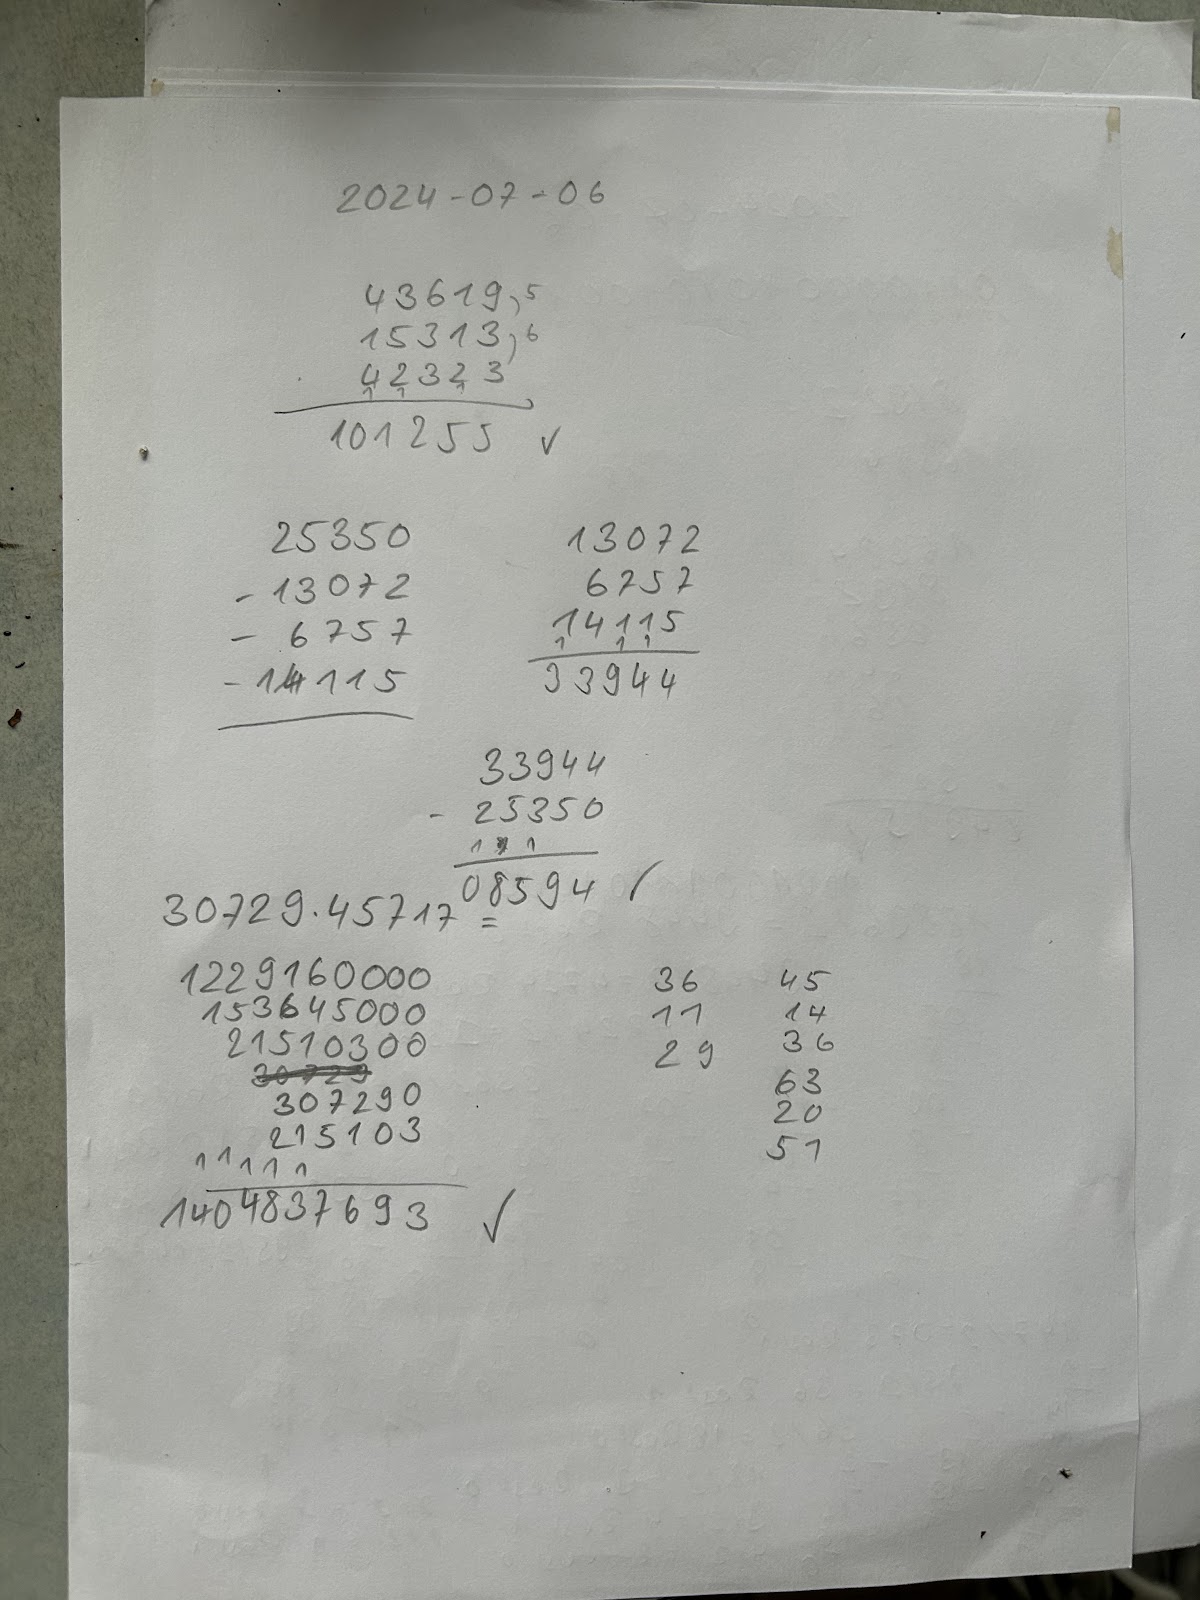 2024-07-06
43619,5
15313,6
42323
1 1 1
101255 ✓
25350
- 13072
- 6757
- 14115
13072
6757
14115
1 1 1
33944
33944
- 25350
1 1 1
08594 ✓
30729·45717 =
1229160000
153645000
21510300
30729
307290
215103
1 1 1 1 1
1404837693 ✓
36
11
29
45
14
36
63
20
51